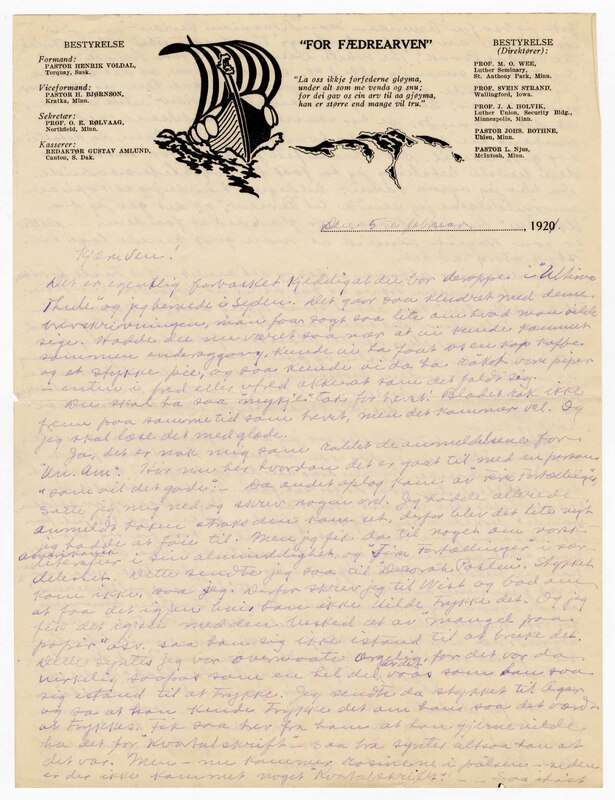 BESTYRELSE
Formand:
PASTOR HENRIK VOLDAL,
Torquay, Sask.
Viceformand:
PASTOR H. BJØRNSON,
Kratka, Minn.
Sekretær:
PROF. O. E. RØLVAAG,
Northfield, Minn.
Kasserer:
REDAKTØR GUSTAV AMLUND,
Canton, S. Dak.
"FOR FÆDREARVEN"
"La oss ikkje forfederne gløyma,
under alt som me venda og snu;
for dei gav os ein arv til aa gjøyma,
han er større end mange vil tru."
BESTYRELSE:
(Direktører):
PROF. M. O. WEE,
Luther Seminary,
St. Anthony Park, Minn.
PROF. SVEIN STRAND,
Wallingford, Iowa.
PROF. J. A. HOLVIK,
Luther Union, Security Bldg.,
Minneapolis, Minn.
PASTOR JOHS. BOTHNE,
Uhlen, Minn.
PASTOR L. Njus,
McIntosh, Minn.
Den 5 februar, 192
Kjære ven!
Det er egentlig forbasket kjedelig at du bor deroppe i "Ultima
Thule" og jeg hernede i Syden. Det gaar saa med denne
brevskrivningen, man faar sagt saa lite om hvad man vilde
sige. Hadde du nu været saa nær at vi kunde kommet
sammen endaaggang, kunde vi ha faat os en kop kaffe
og et stykke pie, og saa kunde vi da ha røket vore piper
— enten i fred eller ufred akkurat som det faldt sig.
Du skal ha saa "mykje" tak for brevet. Bladet kom ikke
frem paa samme tid som brevet, men det kommer vel. Og
jeg skal læse det med glæde.
Ja, det er nok mig som den anmeldelsen for
Hør nu her hvordan det er gaat til med en person
"som vil det gode". — Da andet oplag kom av "Fire Fortællinger",
satte jeg mig ned og skrev nogen ord. Jeg hadde allerede
anmeldt boken straks den kom ut, derfor blev det lite nyt
jeg hadde at føie til. Men jeg fik da til noget om norsk
amerikansk
literatur i sin almindelighet, og "Fire Fortællinger" i sær
deleshet. Dette sendte jeg saa til Decorah Posten. Stykket
kom ikke, saa jeg. Derfor skrev jeg til Wist og bad om
at faa det igjen hvis han ikke vilde trykke det. Og jeg
fik det igjen med den besked at av "mangel paa
papir" osv. saa han sig ikke istand til at bruke det.
Dette syntes jeg var overmaate for det var da
virkelig saapas som en hel del han saa
sig istand til at trykke. Jeg sendte da stykket til
og sa at han kunde trykke det om han saa det værdt
at trykkes. Fik saa brev fra ham at han gjerne vilde
ha det for "Kvartalskrift" — saa bra syntes altsaa han at
det var. Men — nu kommer rosinene i pølsen — siden
er der ikke kommet noget "Kvartalskrift." — Saa